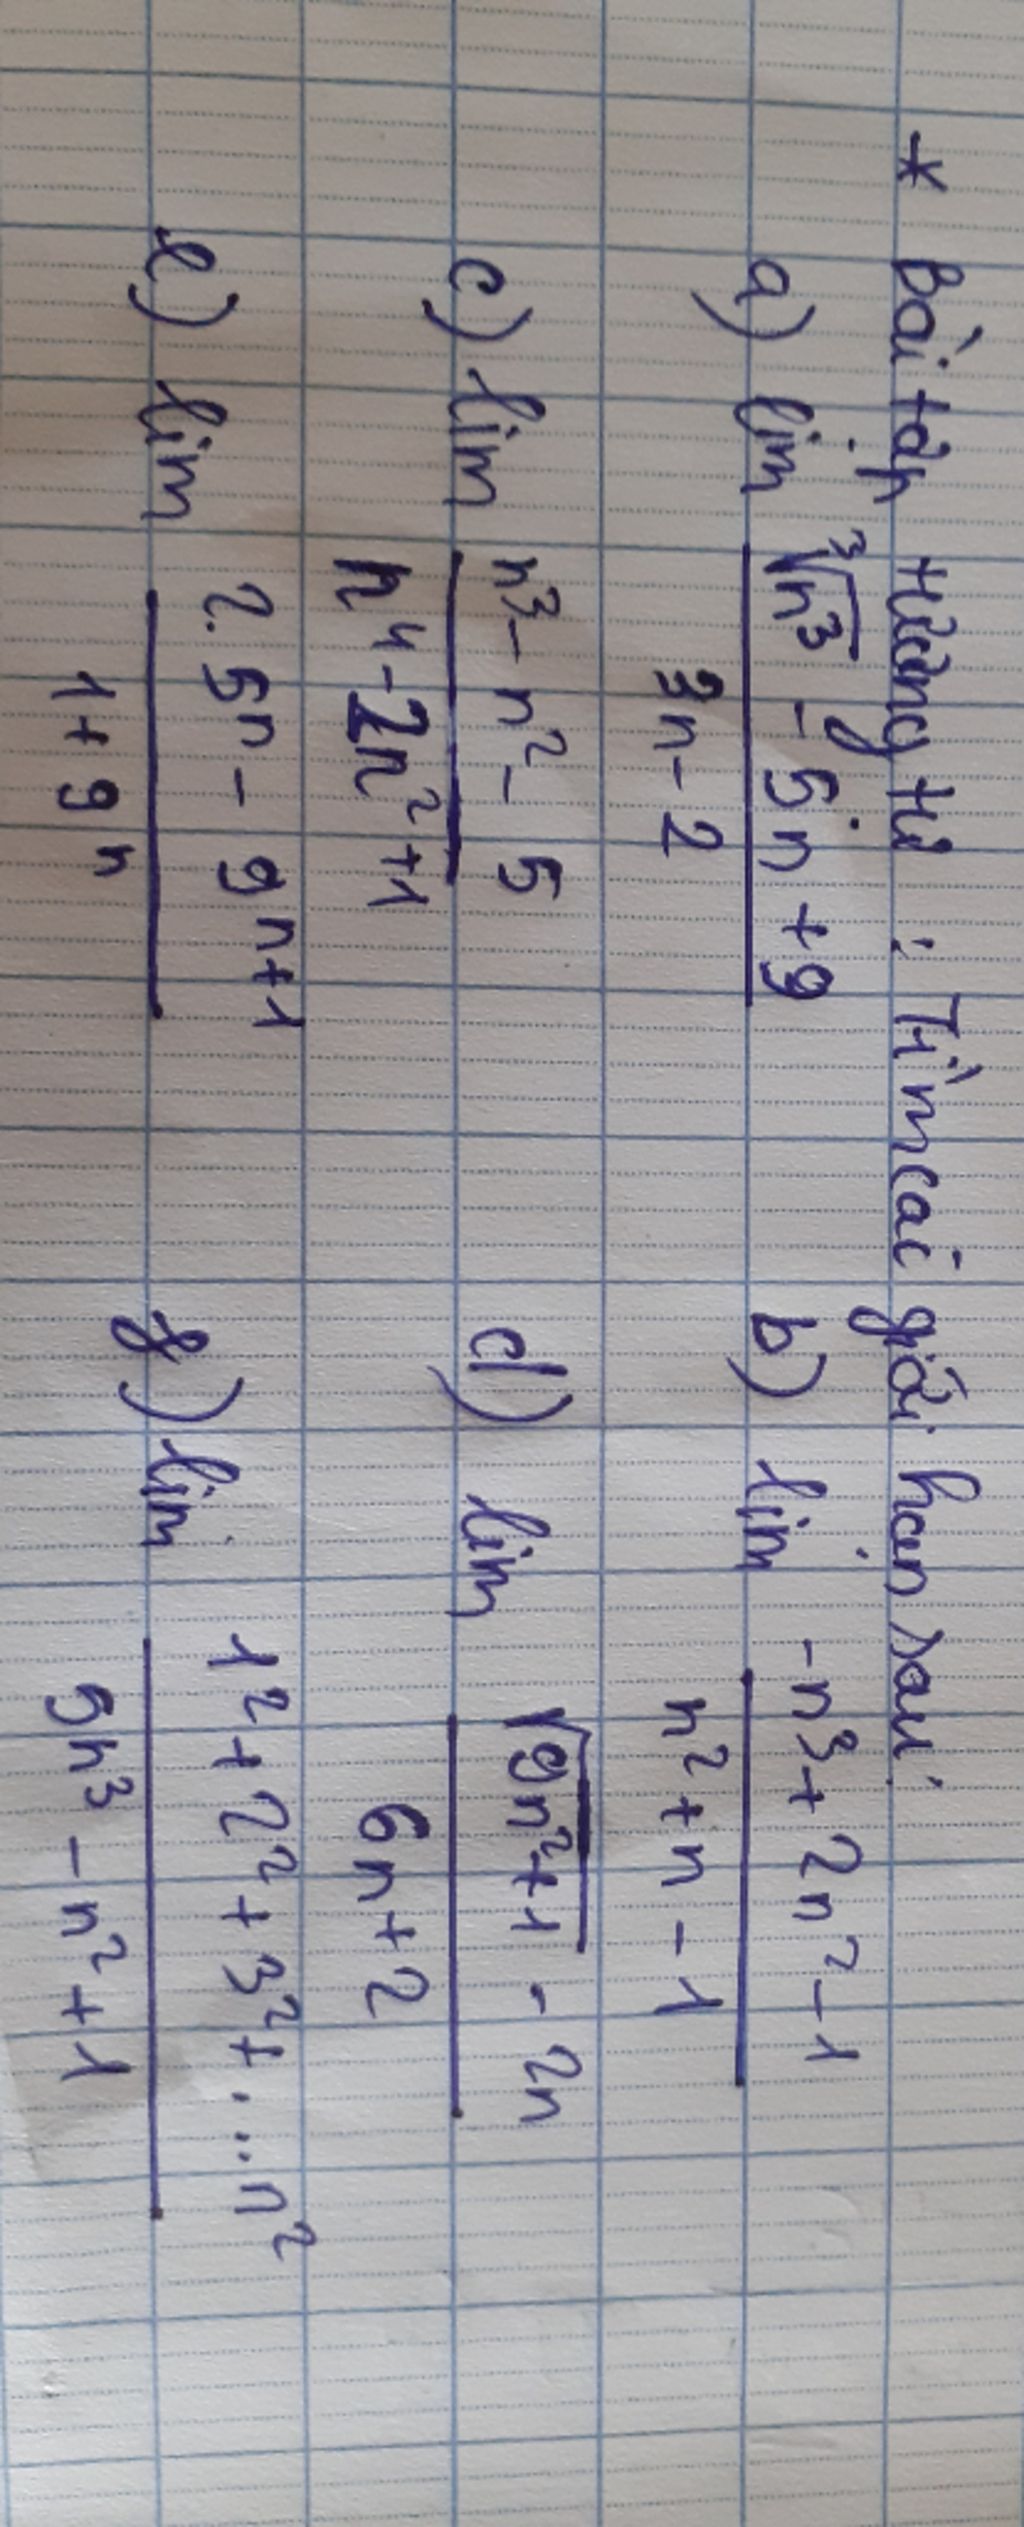 * Bài tập tương tự : Tìm các giới hạn sau:
a) lim (∛n³ - 5n + 9)/(3n - 2) b) lim (-n³ + 2n² - 1)/(n² + n - 1)
c) lim (n³ - n² - 5)/(n⁴ - 2n² + 1) d) lim (√(9n² + 1) - 2n)/(6n + 2)
e) lim (2.5n - 9ⁿ⁺¹)/(1 + 9ⁿ) g) lim (1² + 2² + 3² + ... n²)/(5n³ - n² + 1)